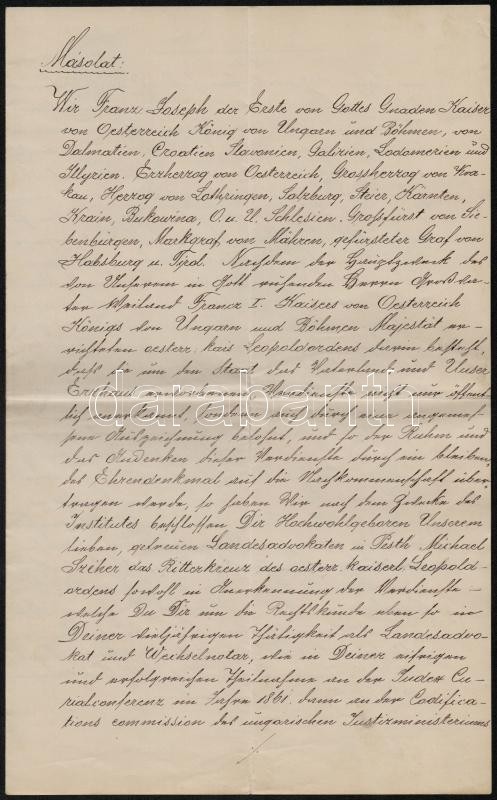 Másolat:
Wir Franz Joseph der Erste von Gottes Gnaden Kaiser
von Oesterreich König von Ungarn und Böhmen, von
Dalmatien, Croatien Slavonien, Galizien, Lodomerien und
Illyrien. Erzherzog von Oesterreich, Grossherzog von Kra-
kau, Herzog von Lothringen, Salzburg, Steier, Kärnten,
Krain, Bukowina, O. u. U. Schlesien. Großfürst von Sie-
benbürgen, Markgraf von Mähren, gefürsteter Graf von
Habsburg u. Tirol. Nachdem der Hauptzweck des
von Unserem in Gott ruhenden Herrn Großva-
ter Weiland Franz I. Kaisers von Oesterreich
Königs von Ungarn und Böhmen Majestät er-
richteten oesterr. kais Leopoldordens darin besteht,
dass die um den Staat das Vaterland und Unser
Erzhaus erworbenen Verdienste nicht nur öffent-
lich anerkannt, sondern auch durch eine angemes-
sene Auszeichnung belohnt, und so der Ruhm und
das Andenken dieser Verdienste durch ein bleiben-
des Ehrendenkmal auf die Nachkommenschaft über-
tragen werde, so haben Wir nach dem Zwecke des
Institutes beschlossen Dir Hochwohlgeboren Unserem
lieben, getreuen Landesadvokaten in Pesth Michael
Széher das Ritterkreuz des oesterr. kaiserl. Leopold-
ordens sowohl in Anerkennung der Verdienste -
welche Du Dir um die Rechtskunde eben so in
Deiner vieljährigen Thätigkeit als Landesadvo-
kat und Wechselnotar, wie in Deiner eifrigen
und erfolgreichen Theilnahme an der Judex Cu-
rialconferenz im Jahre 1861. dann an der Codifica-
tions commission des ungarischen Justizministeriums
darabanth